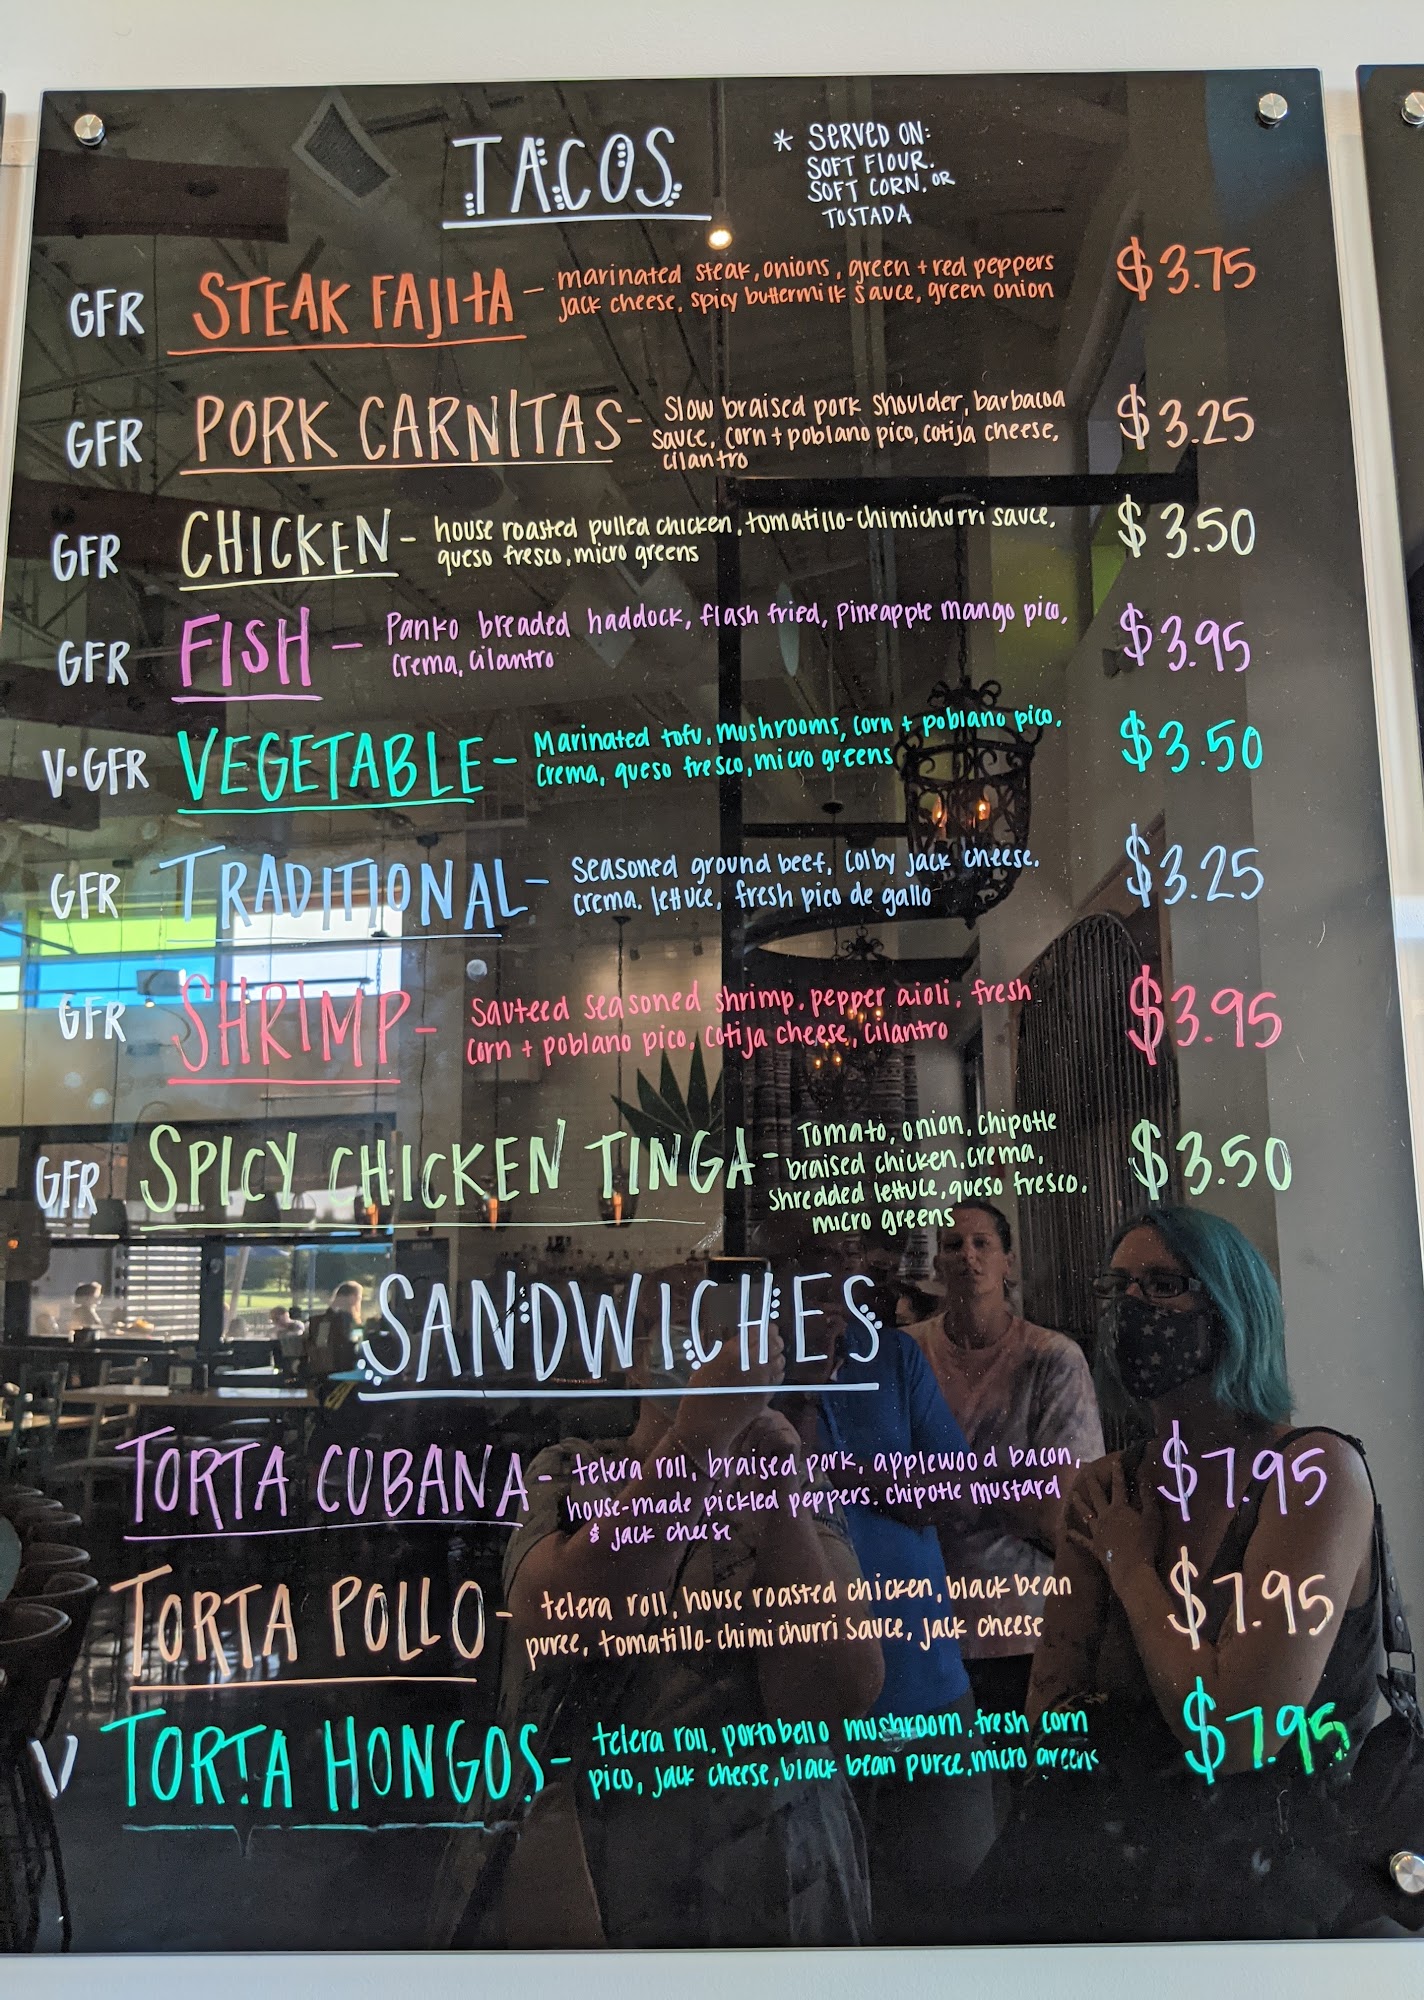 TACOS
* SERVED ON:
SOFT FLOUR.
SOFT CORN, OR
TOSTADA
GFR STEAK FAJITA - marinated steak, onions, green + red peppers $3.75
jack cheese, spicy buttermilk sauce, green onion
GFR PORK CARNITAS - Slow braised pork shoulder, barbacoa $3.25
sauce, corn + poblano pico, cotija cheese,
cilantro
GFR CHICKEN - house roasted pulled chicken, tomatillo-chimichurri sauce, $3.50
queso fresco, micro greens
GFR FISH - Panko breaded haddock, flash fried, pineapple mango pico, $3.95
crema, cilantro
V·GFR VEGETABLE - Marinated tofu, mushrooms, corn + poblano pico, $3.50
crema, queso fresco, micro greens
GFR TRADITIONAL - seasoned ground beef, colby jack cheese, $3.25
crema, lettuce, fresh pico de gallo
GFR SHRIMP - Sauteed seasoned shrimp, pepper aioli, fresh $3.95
corn + poblano pico, cotija cheese, cilantro
GFR SPICY CHICKEN TINGA - Tomato, onion, chipotle $3.50
braised chicken, crema,
shredded lettuce, queso fresco,
micro greens
SANDWICHES
TORTA CUBANA - telera roll, braised pork, applewood bacon, $7.95
house-made pickled peppers, chipotle mustard
& jack cheese
TORTA POLLO - telera roll, house roasted chicken, black bean $7.95
puree, tomatillo-chimichurri sauce, jack cheese
V TORTA HONGOS - telera roll, portobello mushroom, fresh corn $7.95
pico, jack cheese, black bean puree, micro greens